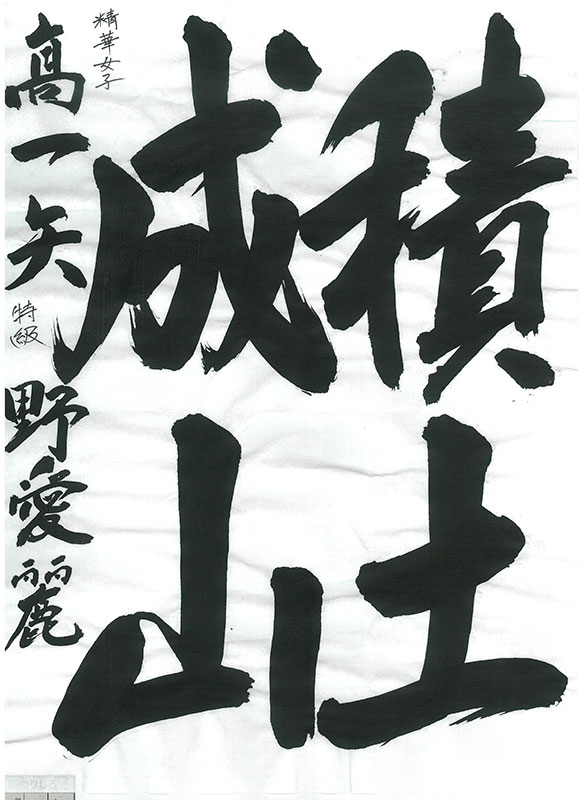 積土
成山
精華女子
高一矢野愛麗
特級